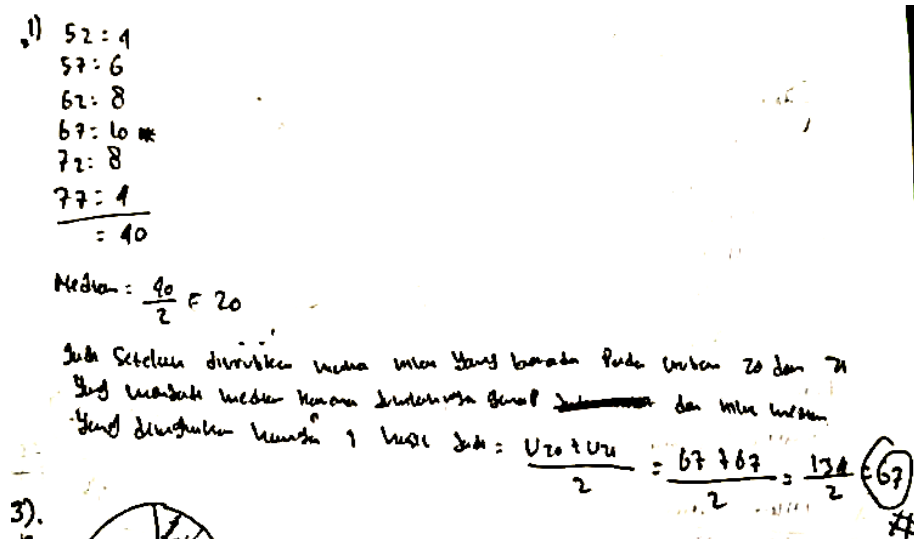 1) 52 : 4
57 : 6
62 : 8
67 : 10 *
72 : 8
77 : 4
= 40
Median = 40/2 = 20
Jadi Setelah diurutkan maka nilai Yang berada Pada urutan 20 dan 21
Yang menjadi median karena Jumlahnya genap dan nilai median
Yang hanya 1 Jadi = U20 + U21 / 2 = 67 + 67 / 2 = 134 / 2 = 67
3).